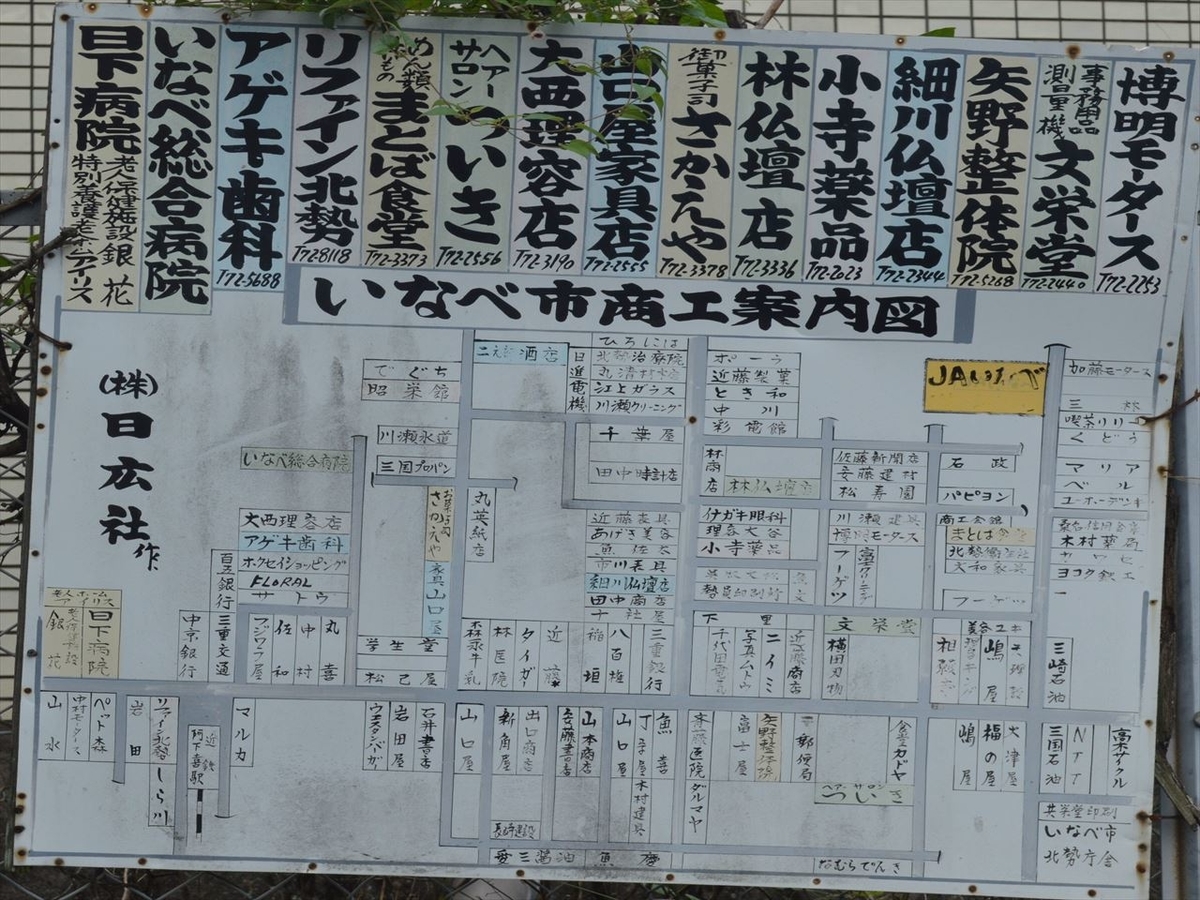 博明モータース
T72-2253
事務用品
測量機
文栄堂
T72-2440
矢野整体院
T72-5268
細川仏壇店
T72-2344
小寺薬品
T72-2023
林仏壇店
T72-3336
御菓子司
さかえや
T72-3378
山口屋家具店
T72-2555
大西理容店
T72-3190
ヘアーサロン
ついき
T72-2556
めん類
まとば食堂
T72-3373
リファイン北勢
T72-8118
アゲキ歯科
T72-5688
いなべ総合病院
日下病院
老人保健施設 銀花
特別養護老ホームアイリス
いなべ市商工案内図
(株)日広社 作
でぐち
昭栄館
川瀬水道
三国プロパン
いなべ総合病院
大西理容店
アゲキ歯科
ホクセイショッピング
FLORAL
サトウ
百五銀行
三重交通
中京銀行
フジワラ屋
佐和
中村
丸喜
銀花
日下病院
お菓子司
さかえや
家具山口屋
学生堂
松己屋
丸英紙店
酒店
日進電機
ひろしには
北勢治療院
江上ガラス
川瀬クリーニング
千葉屋
田中時計店
近藤表具
あげき美容
魚佐太
市川表具
細川仏壇店
田中商店
十社屋
森永牛乳
林医院
タイガー
近藤
稲垣
八百権
三重銀行
ポーラ
近藤製菓
とき和
中川
彩電館
林商店
林仏壇店
イガキ眼科
理容大谷
小寺薬品
下里
千代田電気
写真ムトウ
ニイミ
近藤商店
佐藤新聞店
安藤建材
松寿園
川瀬建具
博明モータース
フーゲツ
文栄堂
横田刃物
JAいなべ
石政
パピヨン
商工会館
まとば食堂
北勢衛生社
大和家具
フーゲツ
嶋屋
加藤モータース
三林
喫茶リリー
くどう
マリア
ベル
ユーホーデンキ
桑名信用金庫
木村薬局
ヨコタ鉄工
三崎石油
山水
中村モータース
ペット森
岩田
リファイン北勢
しら川
近鉄
阿下喜駅
マルカ
ウエスタンバーガー
岩田屋
石井書店
山口
新角屋
出口商店
安藤書店
山本商店
山口屋
丁子屋
木村建具
魚喜
斎藤医院
ダルマヤ
富士屋
矢野整体院
郵便局
食堂カドヤ
ヘアーサロン
ついき
嶋屋
福の屋
大津屋
三国石油
NTT
高木サイクル
共栄堂印刷
いなべ市
北勢庁舎
長崎建設
安三醤油
魚慶
おむらでんき